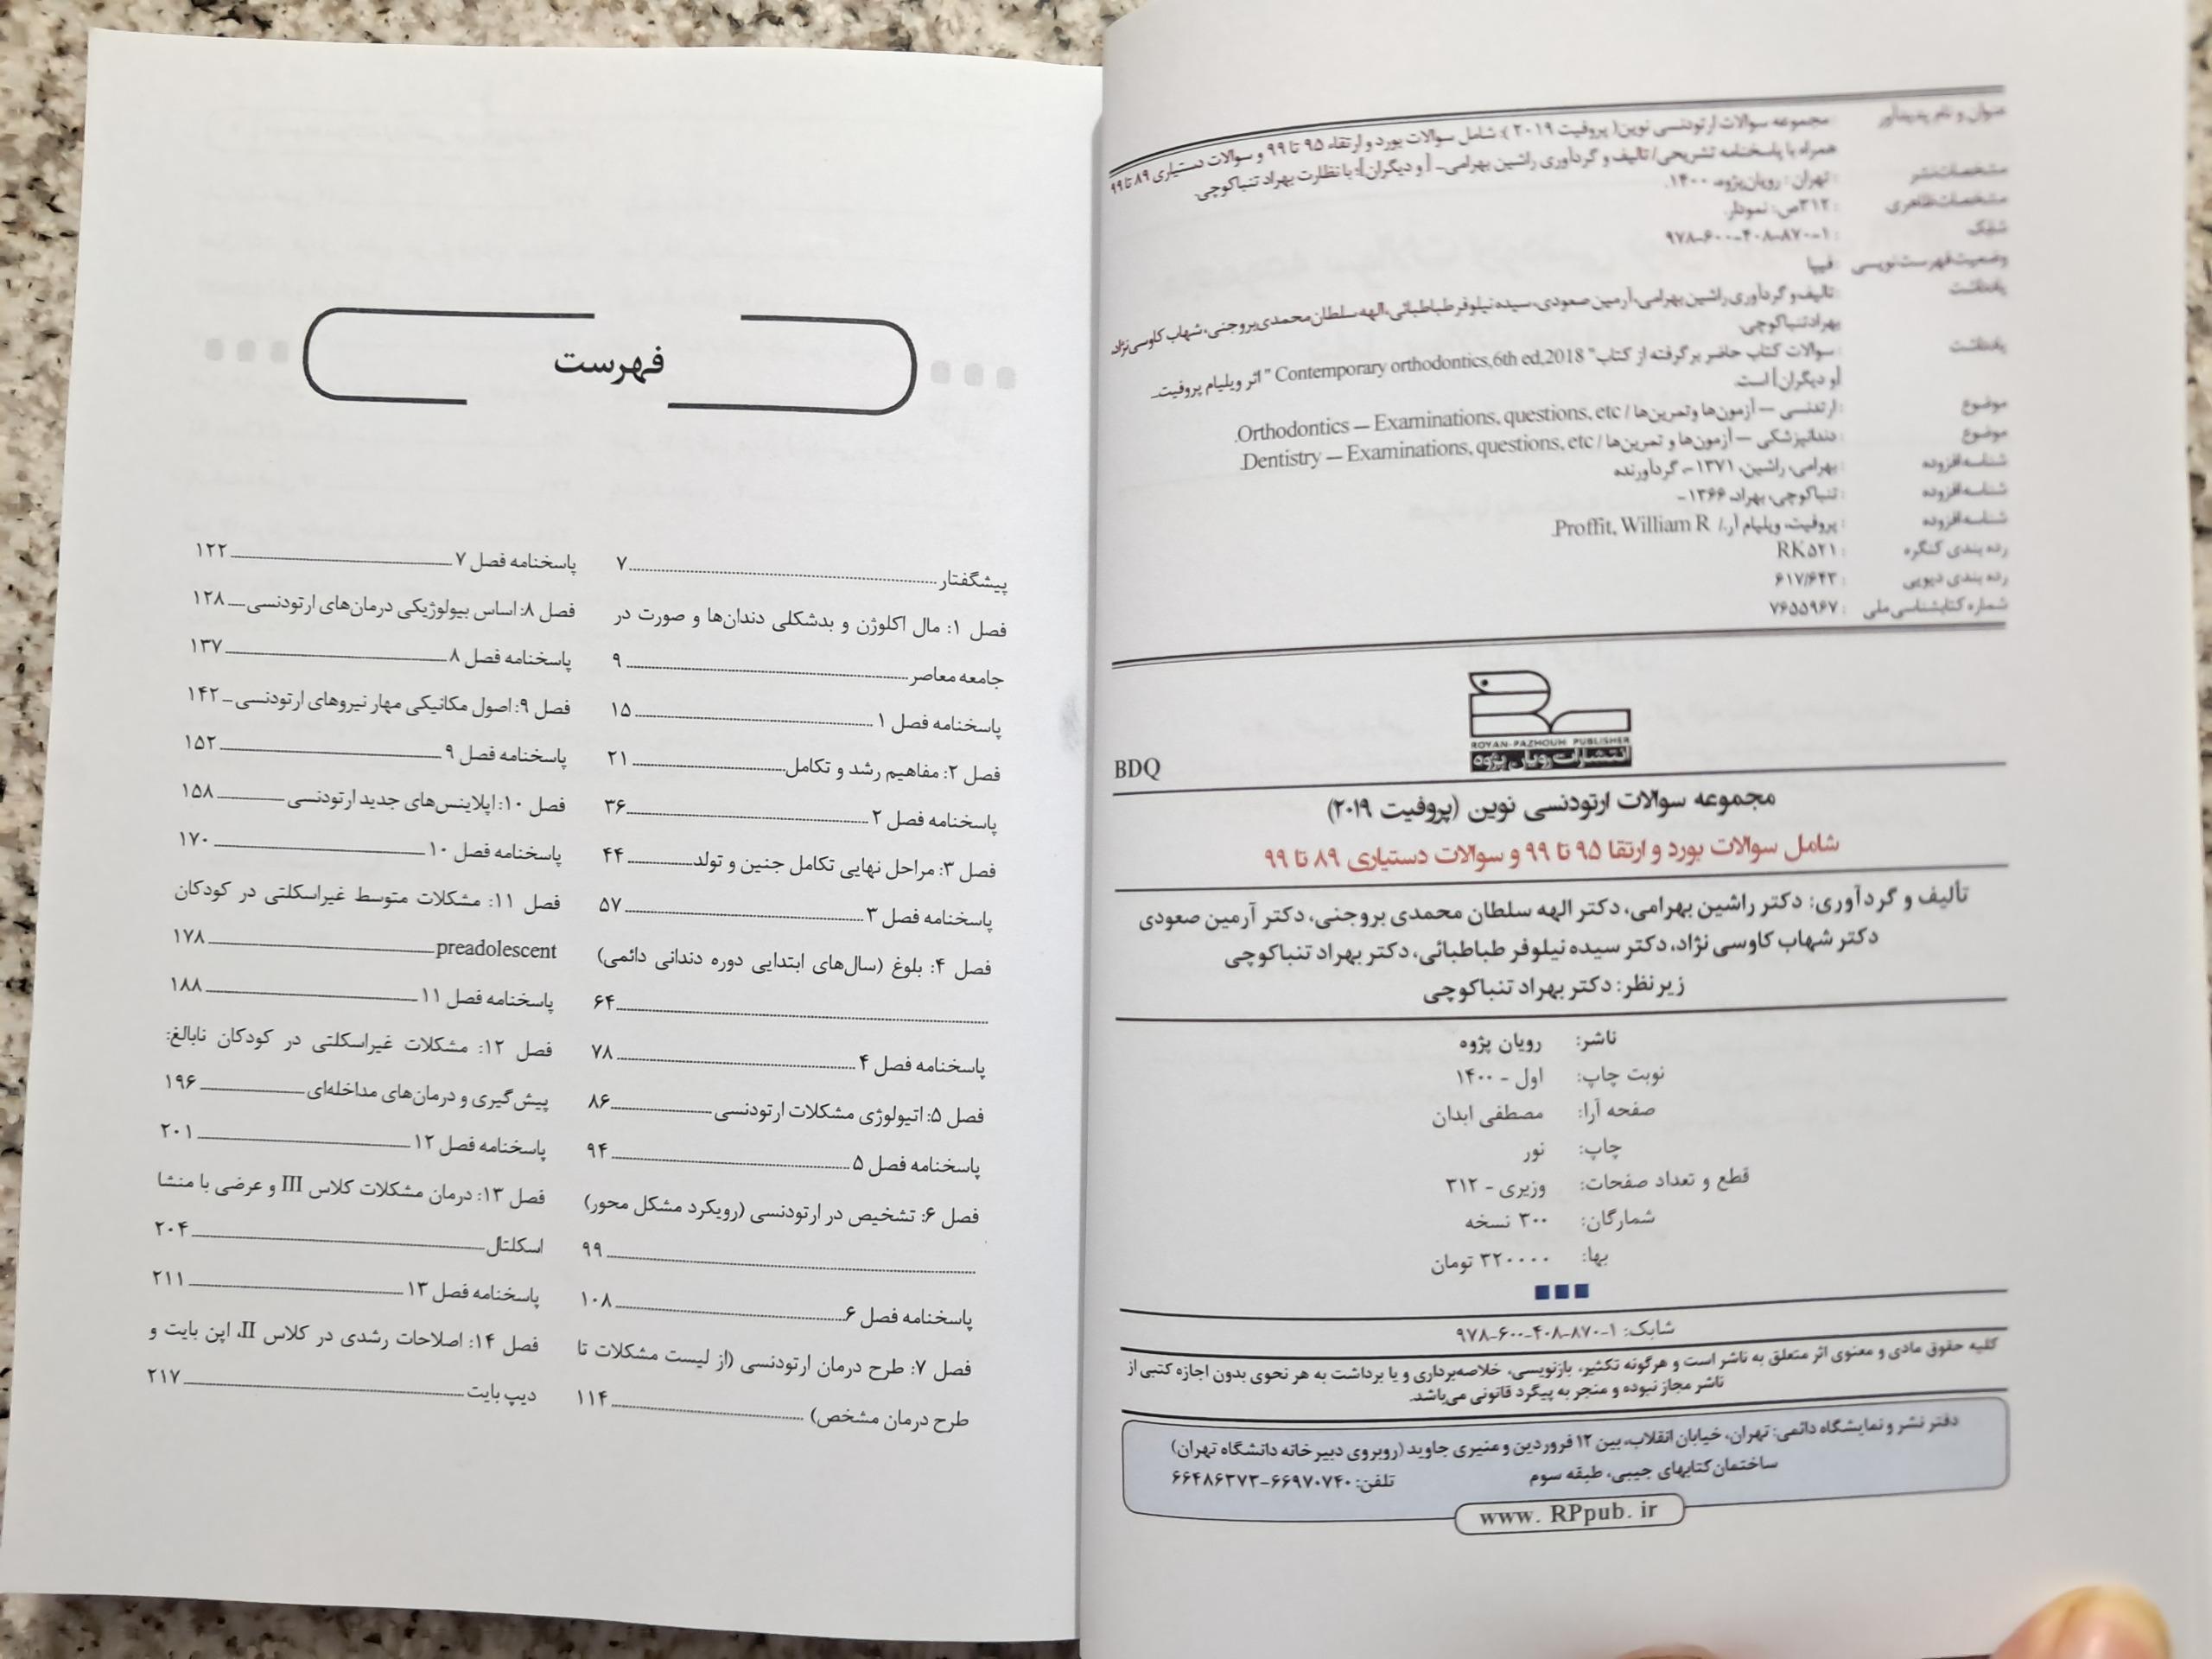 عنوان و نام پدیدآور : مجموعه سوالات ارتودنسی نوین( پروفیت ۲۰۱۹ )؛ شامل سوالات بورد و ارتقاء ۹۵ تا ۹۹ و سوالات دستیاری ۸۹ تا ۹۹
همراه با پاسخنامه تشریحی/ تالیف و گردآوری راشین بهرامی... [ و دیگران]؛ با نظارت بهراد تنباکوچی.
مشخصات نشر : تهران : رویان‌پژوه، ۱۴۰۰.
مشخصات ظاهری : ۳۱۲ص: نمودار.
شابک : ۹۷۸-۶۰۰-۴۰۸-۸۷۰-۱
وضعیت فهرست نویسی : فیپا
یادداشت : تالیف و گردآوری راشین بهرامی، آرمین صعودی، سیده نیلوفر طباطبائی، الهه سلطان محمدی بروجنی، شهاب کاوسی نژاد،
بهراد تنباکوچی.
یادداشت : سوالات کتاب حاضر برگرفته از کتاب" Contemporary orthodontics,6th ed,2018 " اثر ویلیام پروفیت...
[و دیگران] است.
موضوع : ارتدنسی — آزمون‌ها وتمرین‌ها / Orthodontics — Examinations, questions, etc.
موضوع : دندانپزشکی — آزمون‌ها و تمرین‌ها / Dentistry — Examinations, questions, etc.
شناسه افزوده : بهرامی، راشین، ۱۳۷۱-، گردآورنده
شناسه افزوده : تنباکوچی، بهراد، ۱۳۶۶-
شناسه افزوده : پروفیت، ویلیام آر. / Proffit, William R.
رده بندی کنگره : RK۵۲۱
رده بندی دیویی : ۶۱۷/۶۴۳
شماره کتابشناسی ملی : ۷۶۵۵۹۶۷
ROYAN-PAZHOUH PUBLISHER
انتشارات رویان پژوه
BDQ
مجموعه سوالات ارتودنسی نوین (پروفیت ۲۰۱۹)
شامل سوالات بورد و ارتقا ۹۵ تا ۹۹ و سوالات دستیاری ۸۹ تا ۹۹
تألیف و گردآوری: دکتر راشین بهرامی، دکتر الهه سلطان محمدی بروجنی، دکتر آرمین صعودی
دکتر شهاب کاوسی نژاد، دکتر سیده نیلوفر طباطبائی، دکتر بهراد تنباکوچی
زیر نظر: دکتر بهراد تنباکوچی
ناشر: رویان پژوه
نوبت چاپ: اول - ۱۴۰۰
صفحه آرا: مصطفی ابدان
چاپ: نور
قطع و تعداد صفحات: وزیری - ۳۱۲
شمارگان: ۳۰۰ نسخه
بها: ۳۲۰۰۰۰ تومان
شابک: ۱-۸۷۰-۴۰۸-۶۰۰-۹۷۸
کلیه حقوق مادی و معنوی اثر متعلق به ناشر است و هرگونه تکثیر، بازنویسی، خلاصه‌برداری و یا برداشت به هر نحوی بدون اجازه کتبی از
ناشر مجاز نبوده و منجر به پیگرد قانونی می‌باشد.
دفتر نشر و نمایشگاه دائمی: تهران، خیابان انقلاب، بین ۱۲ فروردین و منیری جاوید (روبروی دبیرخانه دانشگاه تهران)
ساختمان کتابهای جیبی، طبقه سوم تلفن: ۶۶۹۷۰۷۴۰-۶۶۴۸۶۳۷۳
www. RPpub. ir
فهرست
پیشگفتار ۷
فصل ۱: مال اکلوژن و بدشکلی دندان‌ها و صورت در
جامعه معاصر ۹
پاسخنامه فصل ۱ ۱۵
فصل ۲: مفاهیم رشد و تکامل ۲۱
پاسخنامه فصل ۲ ۳۶
فصل ۳: مراحل نهایی تکامل جنین و تولد ۴۴
پاسخنامه فصل ۳ ۵۷
فصل ۴: بلوغ (سال‌های ابتدایی دوره دندانی دائمی)
۶۴
پاسخنامه فصل ۴ ۷۸
فصل ۵: اتیولوژی مشکلات ارتودنسی ۸۶
پاسخنامه فصل ۵ ۹۴
فصل ۶: تشخیص در ارتودنسی (رویکرد مشکل محور)
۹۹
پاسخنامه فصل ۶ ۱۰۸
فصل ۷: طرح درمان ارتودنسی (از لیست مشکلات تا
طرح درمان مشخص) ۱۱۴
پاسخنامه فصل ۷ ۱۲۲
فصل ۸: اساس بیولوژیکی درمان‌های ارتودنسی ۱۲۸
پاسخنامه فصل ۸ ۱۳۷
فصل ۹: اصول مکانیکی مهار نیروهای ارتودنسی ۱۴۲
پاسخنامه فصل ۹ ۱۵۲
فصل ۱۰: اپلاینس‌های جدید ارتودنسی ۱۵۸
پاسخنامه فصل ۱۰ ۱۷۰
فصل ۱۱: مشکلات متوسط غیراسکلتی در کودکان
preadolescent ۱۷۸
پاسخنامه فصل ۱۱ ۱۸۸
فصل ۱۲: مشکلات غیراسکلتی در کودکان نابالغ:
پیش‌گیری و درمان‌های مداخله‌ای ۱۹۶
پاسخنامه فصل ۱۲ ۲۰۱
فصل ۱۳: درمان مشکلات کلاس III و عرضی با منشا
اسکلتال ۲۰۴
پاسخنامه فصل ۱۳ ۲۱۱
فصل ۱۴: اصلاحات رشدی در کلاس II، اپن بایت و
دیپ بایت ۲۱۷